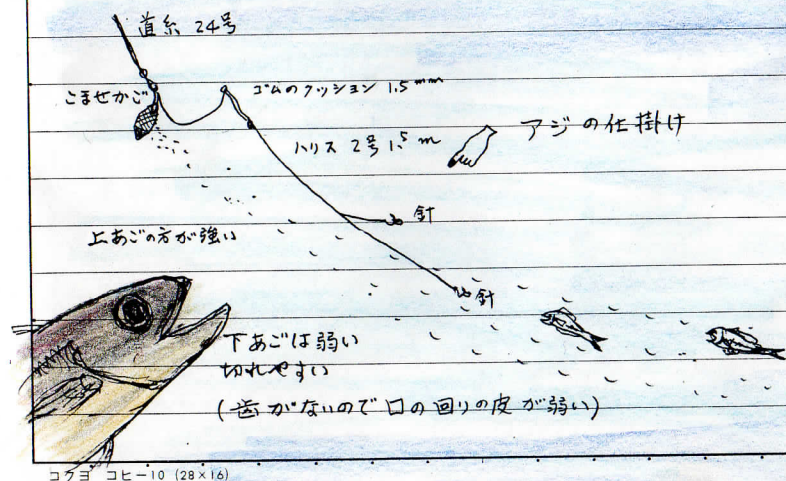 道糸 24号
こませかご
ゴムのクッション 1.5mm
ハリス 2号 1.5m
アジの仕掛け
針
上あごの方が強い
針
下あごは弱い
切れやすい
(歯がないので口の回りの皮が弱い)
コクヨ コヒー10 (28×16)